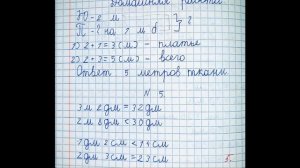 Домашняя работа
Ю - 2 м
П - ? на 1 м б ?
1) 2 + 1 = 3 (м) - платье
2) 2 + 3 = 5 (м) - всего
Ответ 5 метров ткани
№ 5.
3 м 2 дм = 32 дм
2 м 8 дм < 30 дм
1 дм 2 см <
2 дм 3 см = 23 см